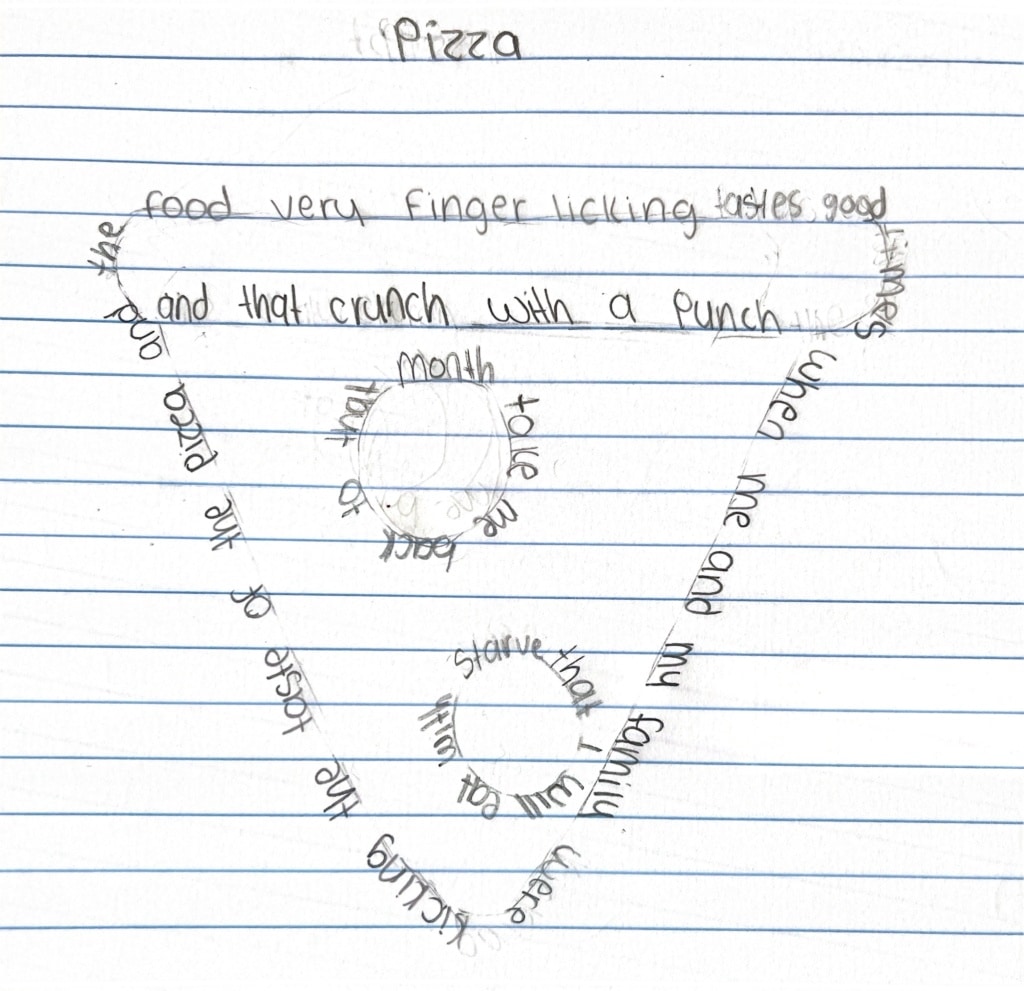 Pizza
food very finger licking tastes good
times
when me and my family were
kicking
the taste of the pizza
and
the
and that crunch with a punch
month take me back to that
starve that I will eat with